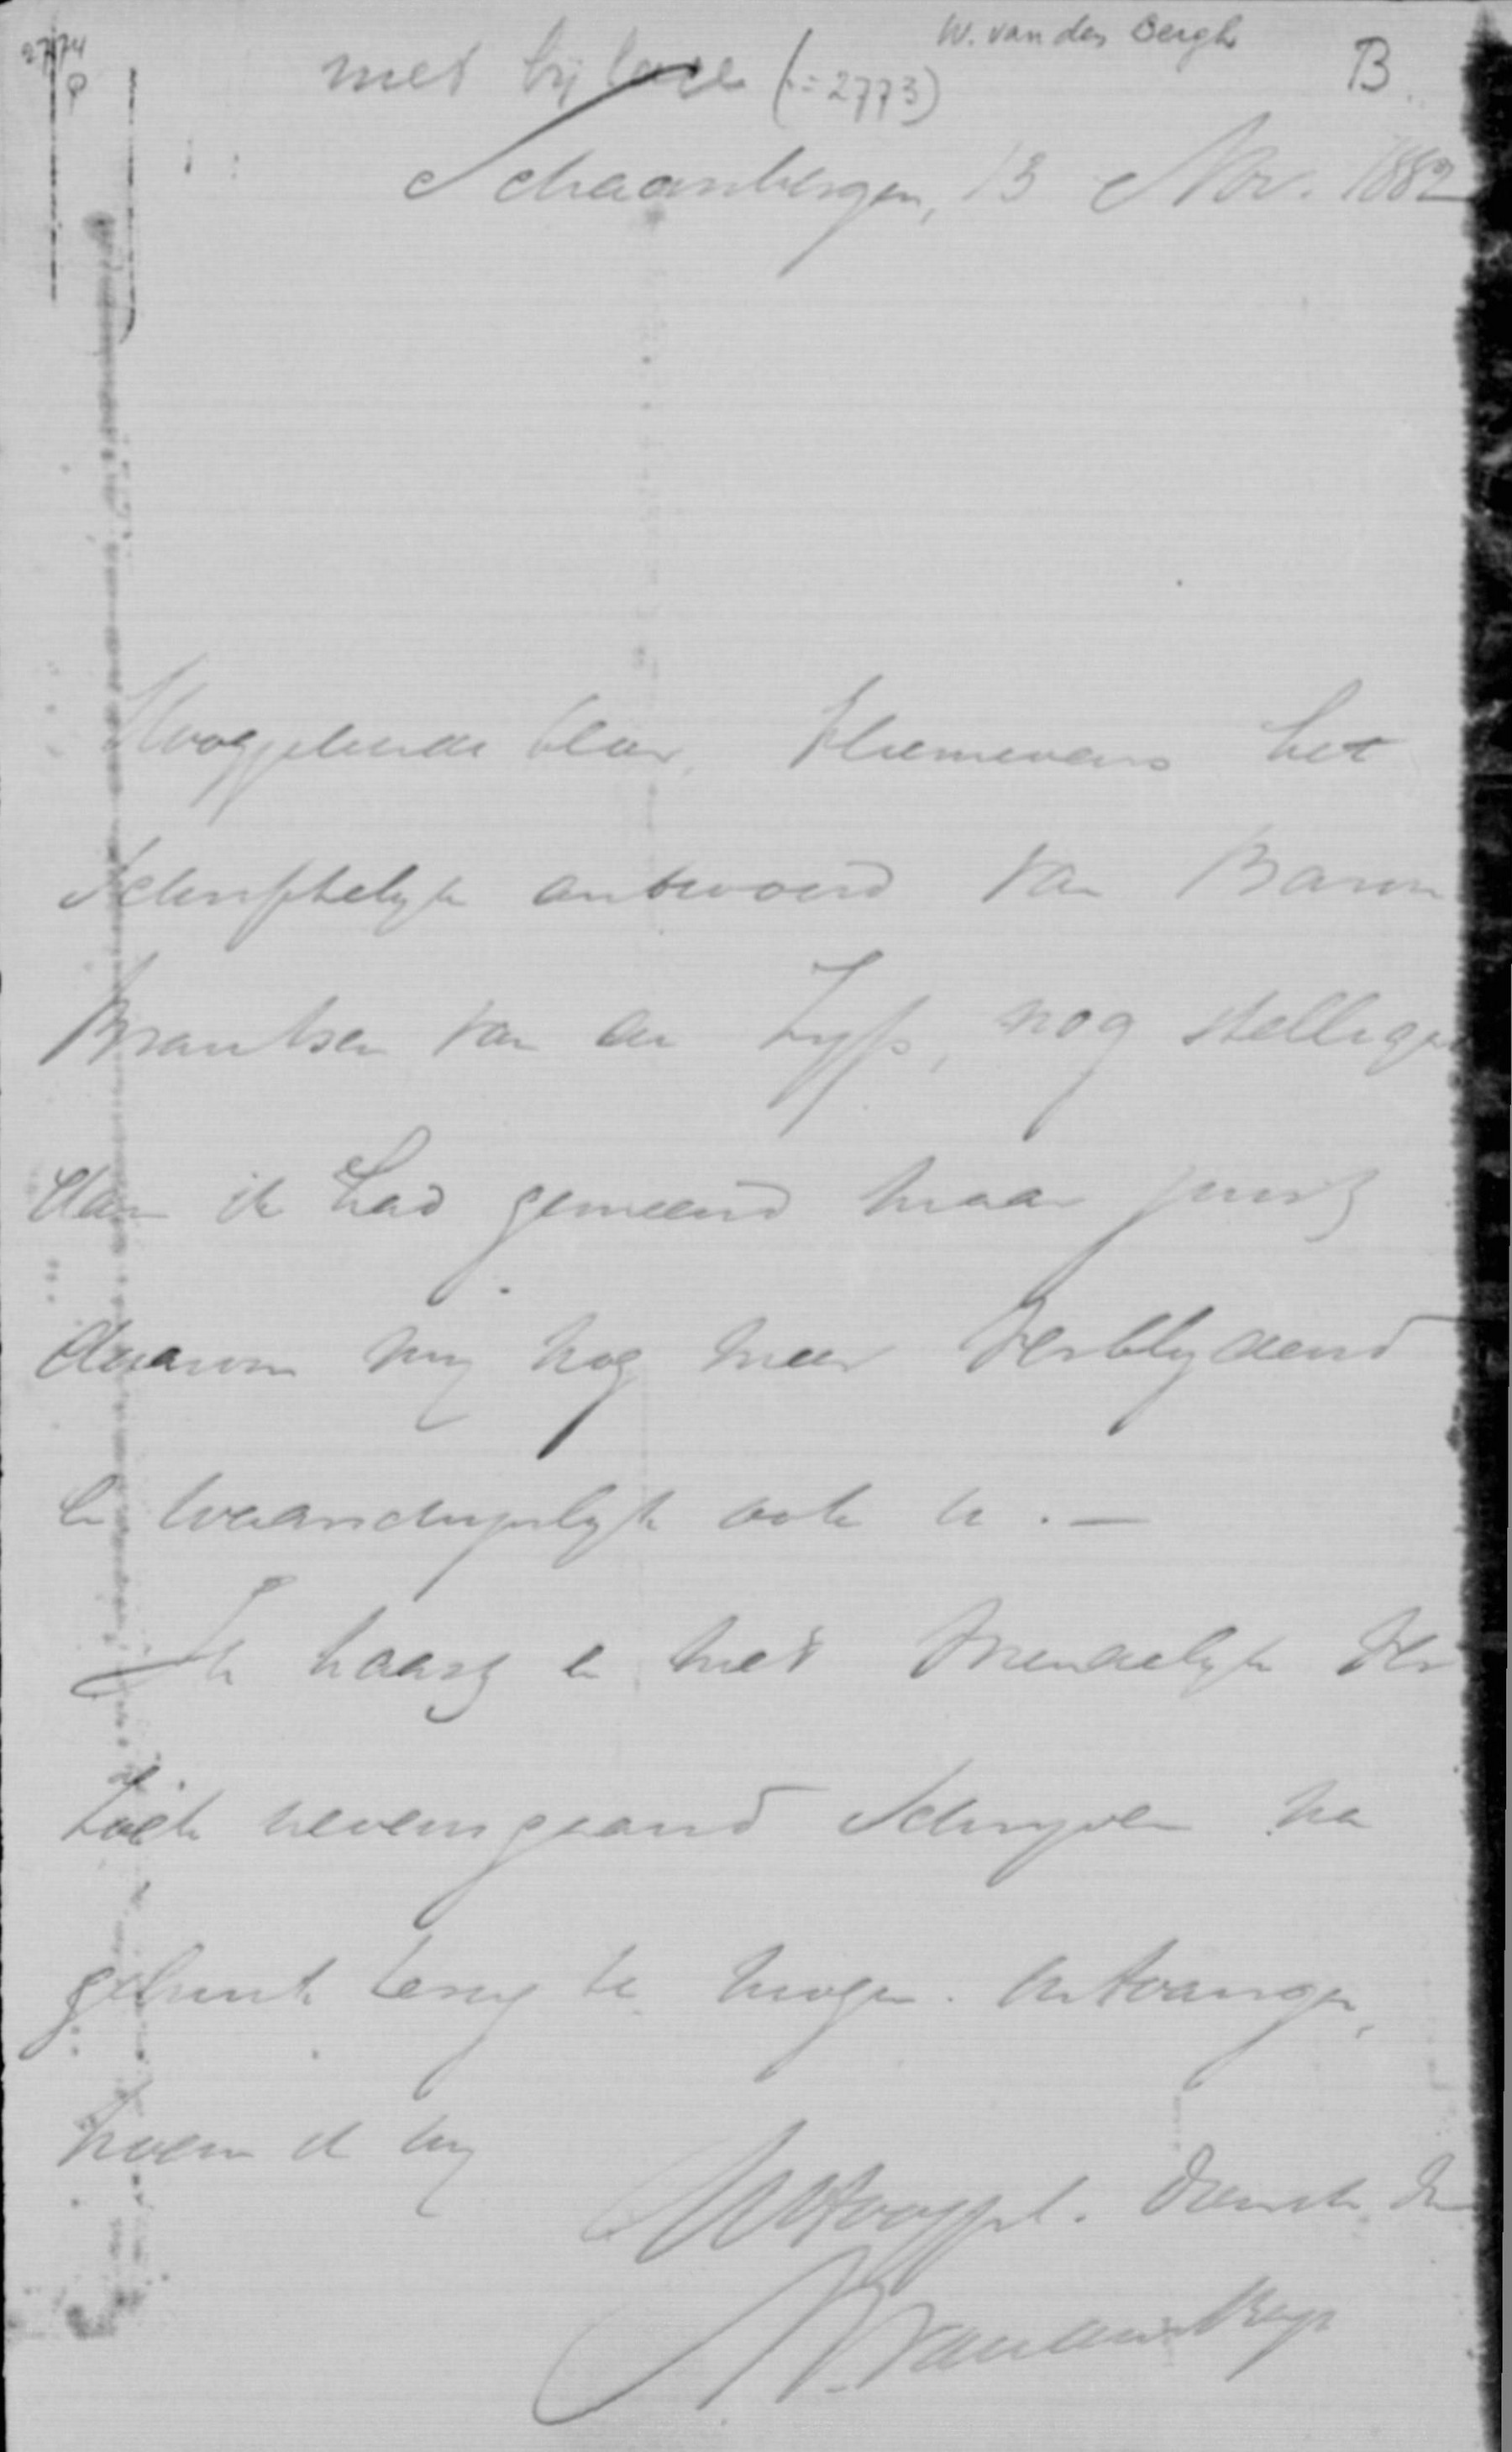 2774
W. van den Bergh
B.
met bijlage (=2773)
Schaarsbergen, 13 Nov. 1882
Hooggeleerde Heer, Hiernevens het
schriftelijk antwoord van Baron
Brantsen van de Zyp, nog stelliger
dan ik had gemeend maar juist
daarom mij nog meer verblijdend
en waarschijnlijk ook u. —
Ik haast en met vriendelijk ver
zoek nevensgaand schrijven na
gebruik terug te mogen ontvangen,
noem ik mij
UwHooggel. Dienstv. Dr
W. van den Bergh